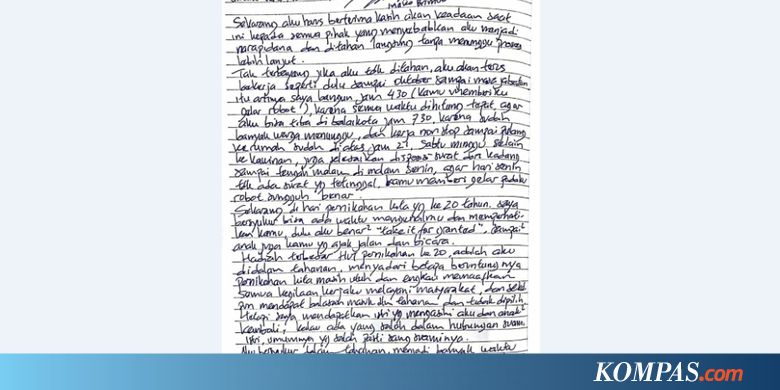 Sekarang aku harus berterima kasih akan keadaan saat
ini kepada semua pihak yang menyebabkan aku menjadi
narapidana dan ditahan langsung tanpa menunggu proses
lebih lanjut.
Tak terbayang jika aku tdk ditahan, aku akan terus
bekerja seperti dulu sampai Oktober sampai masa jabatan
itu artinya saya bangun jam 4.30 (kamu memberiku
gelar robot), karena semua waktu dihitung tepat, agar
aku bisa tiba di balaikota jam 7.30 karena sudah
banyak warga menunggu, dan kerja non stop sampai pulang
ke rumah sudah diatas jam 21. Sabtu minggu selain
ke kawinan, juga selesaikan disposisi surat dan kadang
sampai tengah malam di malam senin, agar hari senin
tdk ada surat yg tertinggal, kamu memberi gelar padaku
robot sungguh benar.
Sekarang di hari pernikahan kita yg ke 20 tahun, saya
bersyukur bisa ada waktu mengenalmu dan memperhati-
kan kamu, dulu aku benar2 "take it for granted", sampai2
anak juga kamu yg ajak jalan dan bicara.
Hadiah terbesar HUT pernikahan ke 20, adalah aku
didalam tahanan, menyadari betapa beruntung nya
pernikahan kita masih utuh dan engkau memaafkan
semua kegilaan kerjaku melayani masyarakat, dan
pun mendapat balasan masuk tahanan dan tidak dipilih
tetapi saya mendapatkan istri yg mengasihi aku dan anak2
kembali, kalau ada yang salah dalam hubungan suami
istri, umumnya yg salah pasti sang suaminya.
Aku bersyukur dalam tahanan, menjadi banyak waktu
KOMPAS.com